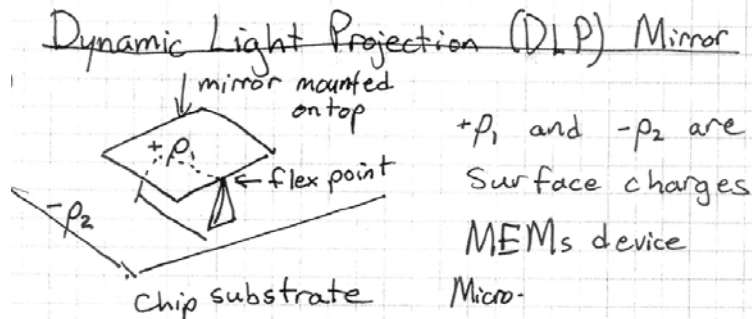 Dynamic Light Projection (DLP) Mirror
mirror mounted
on top
+ρ₁
flex point
-ρ₂
chip substrate
+ρ₁ and -ρ₂ are
Surface charges
MEMs device
Micro-